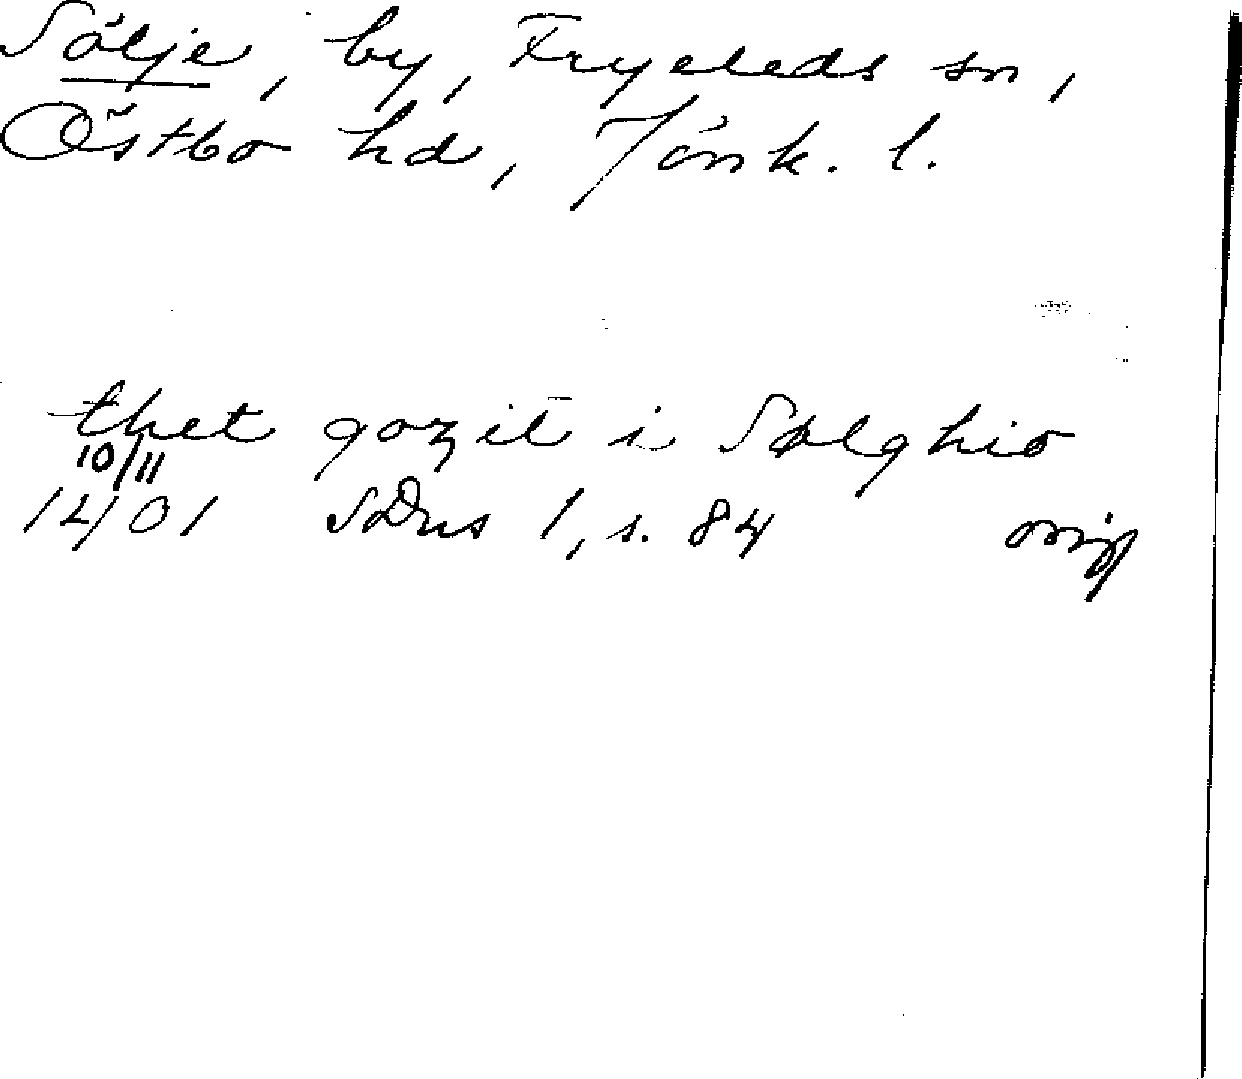 Sölje, by, Fryeleds sn,
Östbo hd, Jönk. l.
thet gozit i Sølghio
10/11
1401 SDns 1, s. 84 orig